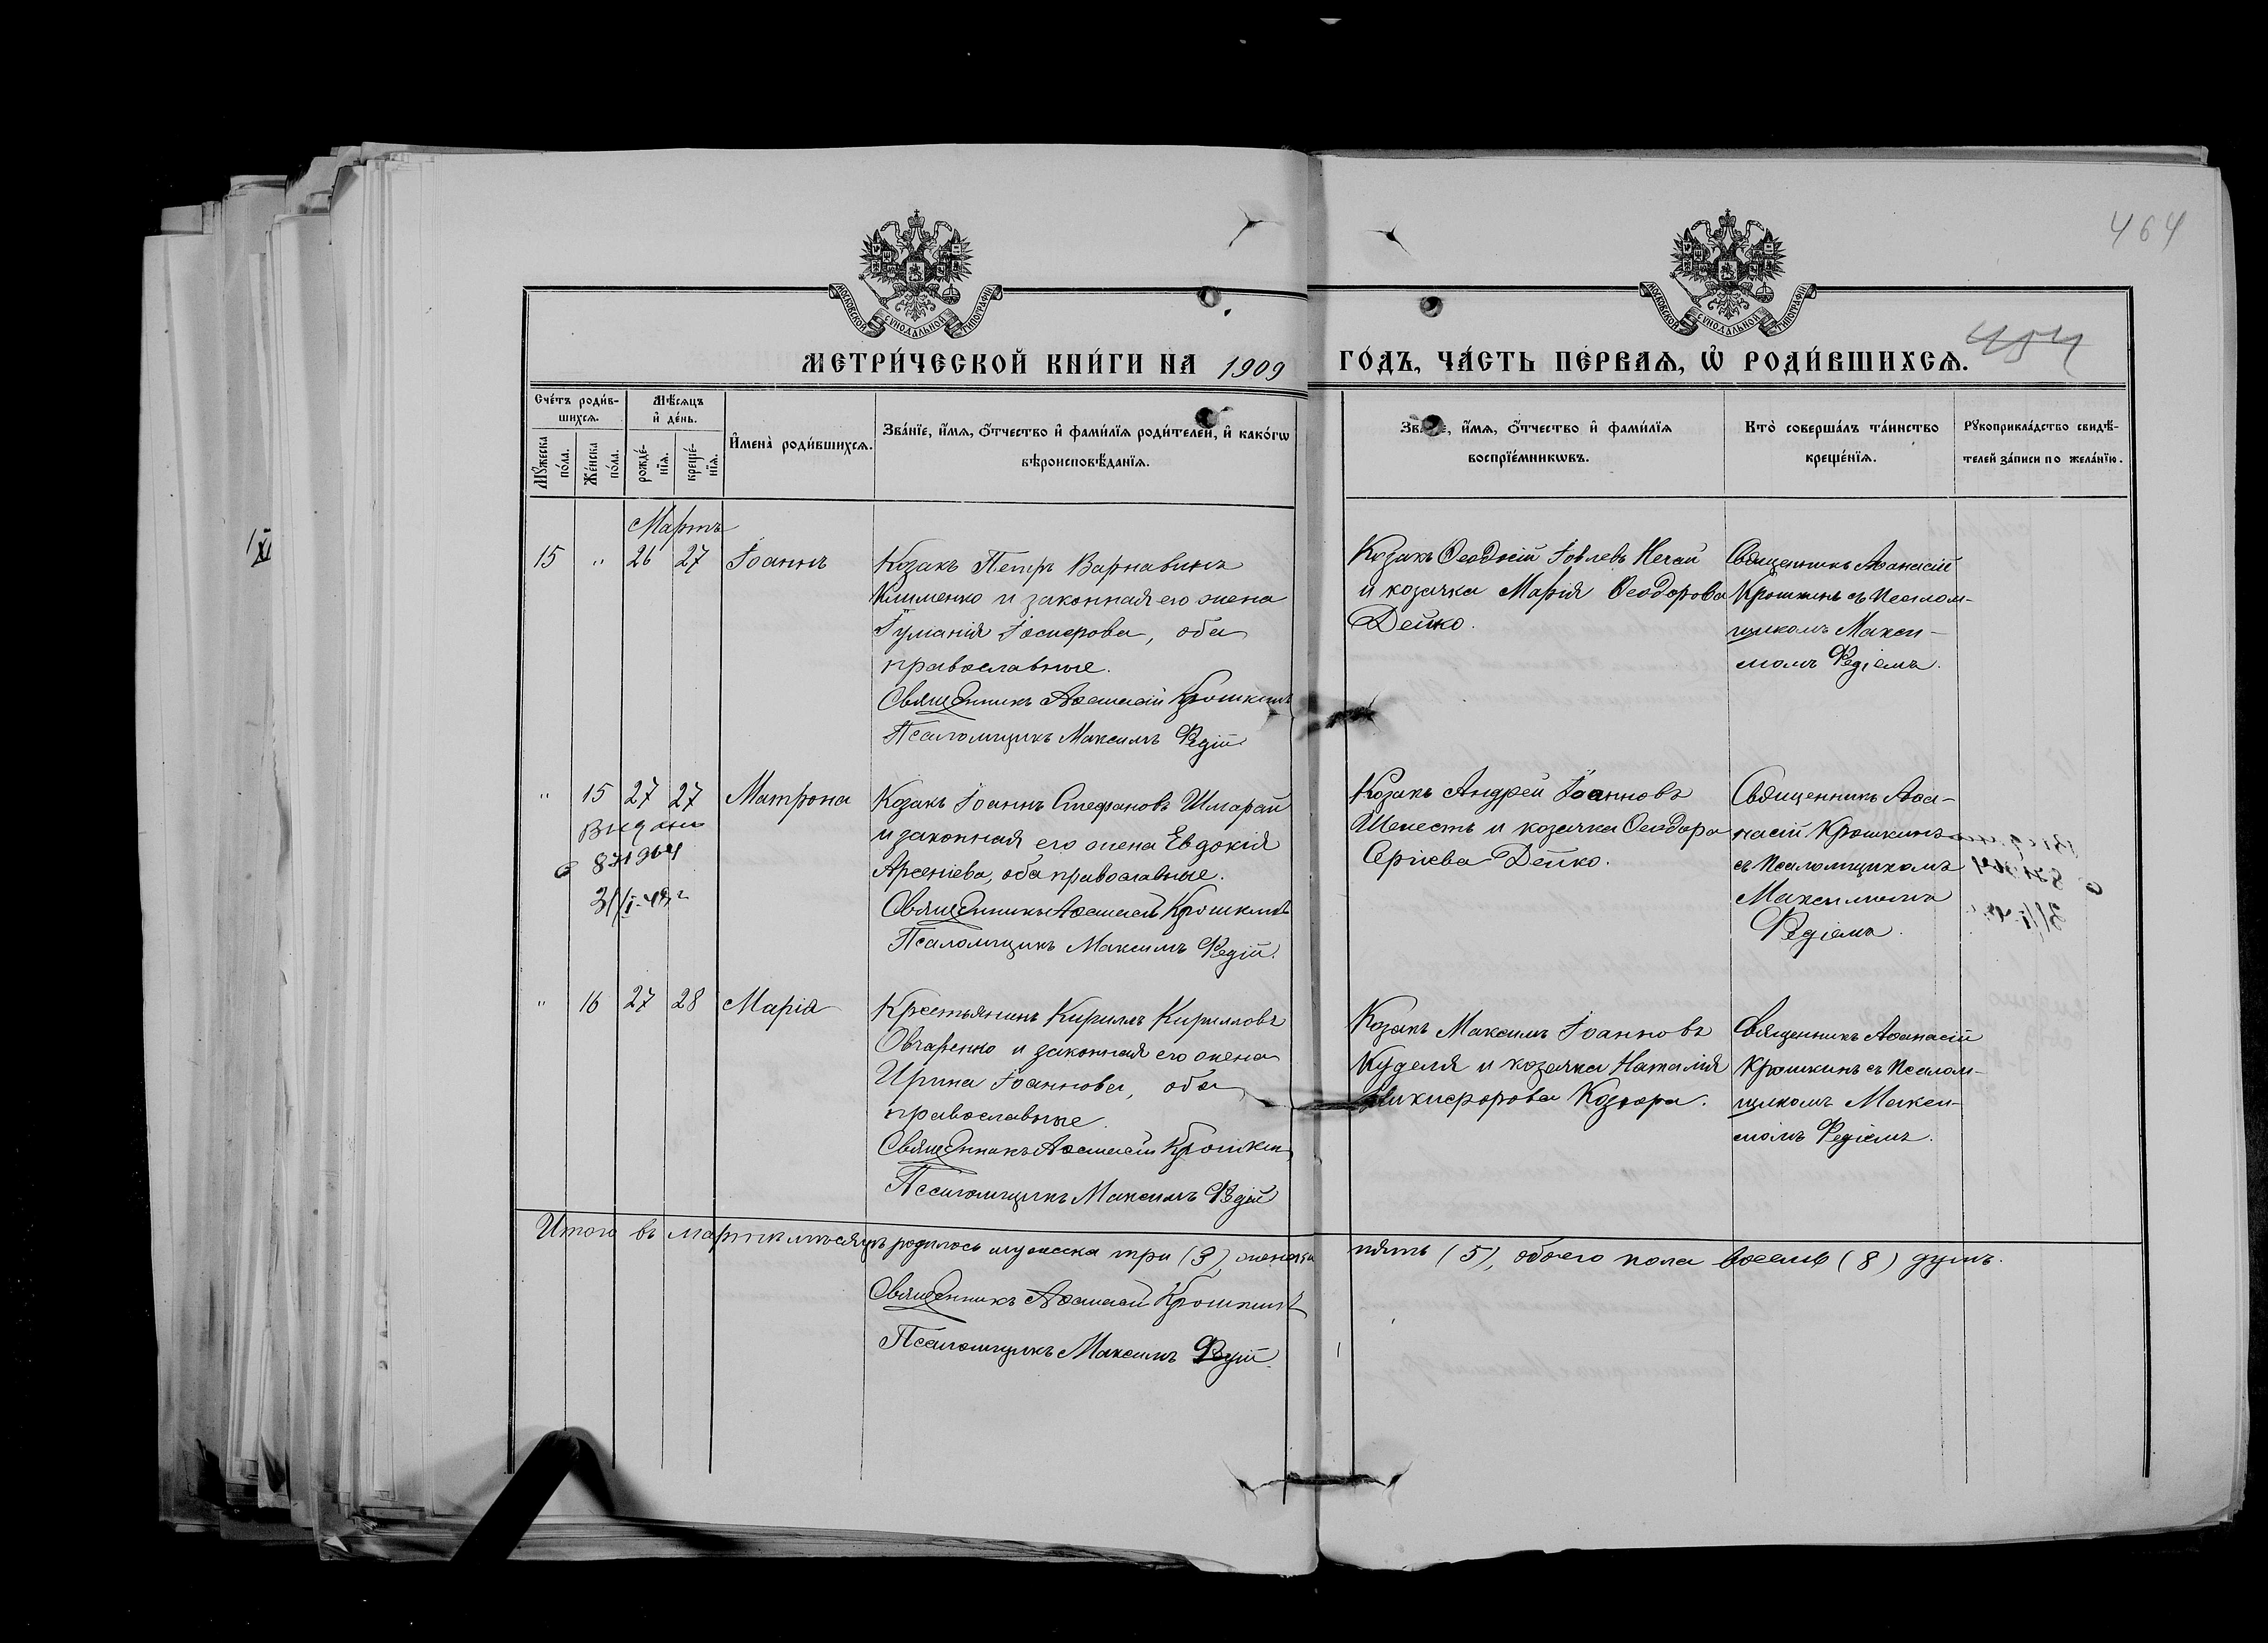 464
МОСКОВСКОЙ СУНОДАЛЬНОЙ ТИПОГРАФІИ
МОСКОВСКОЙ СУНОДАЛЬНОЙ ТИПОГРАФІИ
МЕТРИ́ЧЕСКОЙ КНИ́ГИ НА 1909 ГО́ДЪ, ЧА́СТЬ ПЕ́РВАѦ, Ѽ РОДИ́ВШИХСѦ.
Сче́тъ роди́в-
шихсѧ.
Мѣ́сѧцъ
и҆ де́нь.
Мꙋ́жеска
по́ла.
Же́нска
по́ла.
рожде́-
нїѧ.
креще́-
нїѧ.
И҆мена̀ роди́вшихсѧ.
Зва́нїе, и҆́мѧ, ѻ҆́тчество и҆ фами́лїѧ роди́телей, и҆ како́гѡ
вѣроисповѣ́данїѧ.
Зва́нїе, и҆́мѧ, ѻ҆́тчество и҆ фами́лїѧ
воспрїе́мникѡвъ.
Кто̀ соверша́лъ та́инство
креще́нїѧ.
Рꙋкоприкла́дство свидѣ́-
телей за́писи по жела́нїю.
Мартъ
15 " 26 27 Іоаннъ
Козакъ Петръ Варнавинъ
Клименко и законная его жена
Іосифова, оба
православные.
Священникъ Аѳанасій Крошкинъ
Псаломщикъ Максимъ Редій
Козакъ Ѳеодосій Іовлевъ Нечай
и козачка Марія Ѳеодорова
Дейко.
Священникъ Аѳанасій
Крошкинъ съ Псалом-
щикомъ Макси-
момъ Редіемъ.
" 15 27 27 Матрона
Видано
871964
Козакъ Іоаннъ Стефановъ Шмарай
и законная его жена Евдокія
Арсеніева, оба православные.
Священникъ Аѳанасій Крошкинъ
Псаломщикъ Максимъ Редій.
Козакъ Андрей Іоанновъ
Шелестъ и козачка Ѳеодора
Сергіева Дейко.
Священникъ Аѳа-
насій Крошкинъ
съ Псаломщикомъ
Максимомъ
Редіемъ.
" 16 27 28 Марія
Крестьянинъ Кириллъ Кирилловъ
Овчаренко и законная его жена
Ирина Іоаннова, оба
православные.
Священникъ Аѳанасій Крошкин
Псаломщикъ Максимъ Редій
Козакъ Максимъ Іоанновъ
Куделя и козачка Наталія
Никифорова Козюра.
Священникъ Аѳанасій
Крошкинъ съ Псалом-
щикомъ Макси-
момъ Редіемъ.
Итого въ мартѣ мѣсяцѣ родилось мужеска три (3), женска пять (5), обоего пола восемь (8) душъ.
Священникъ Аѳанасій Крошкинъ
Псаломщикъ Максимъ Редій.